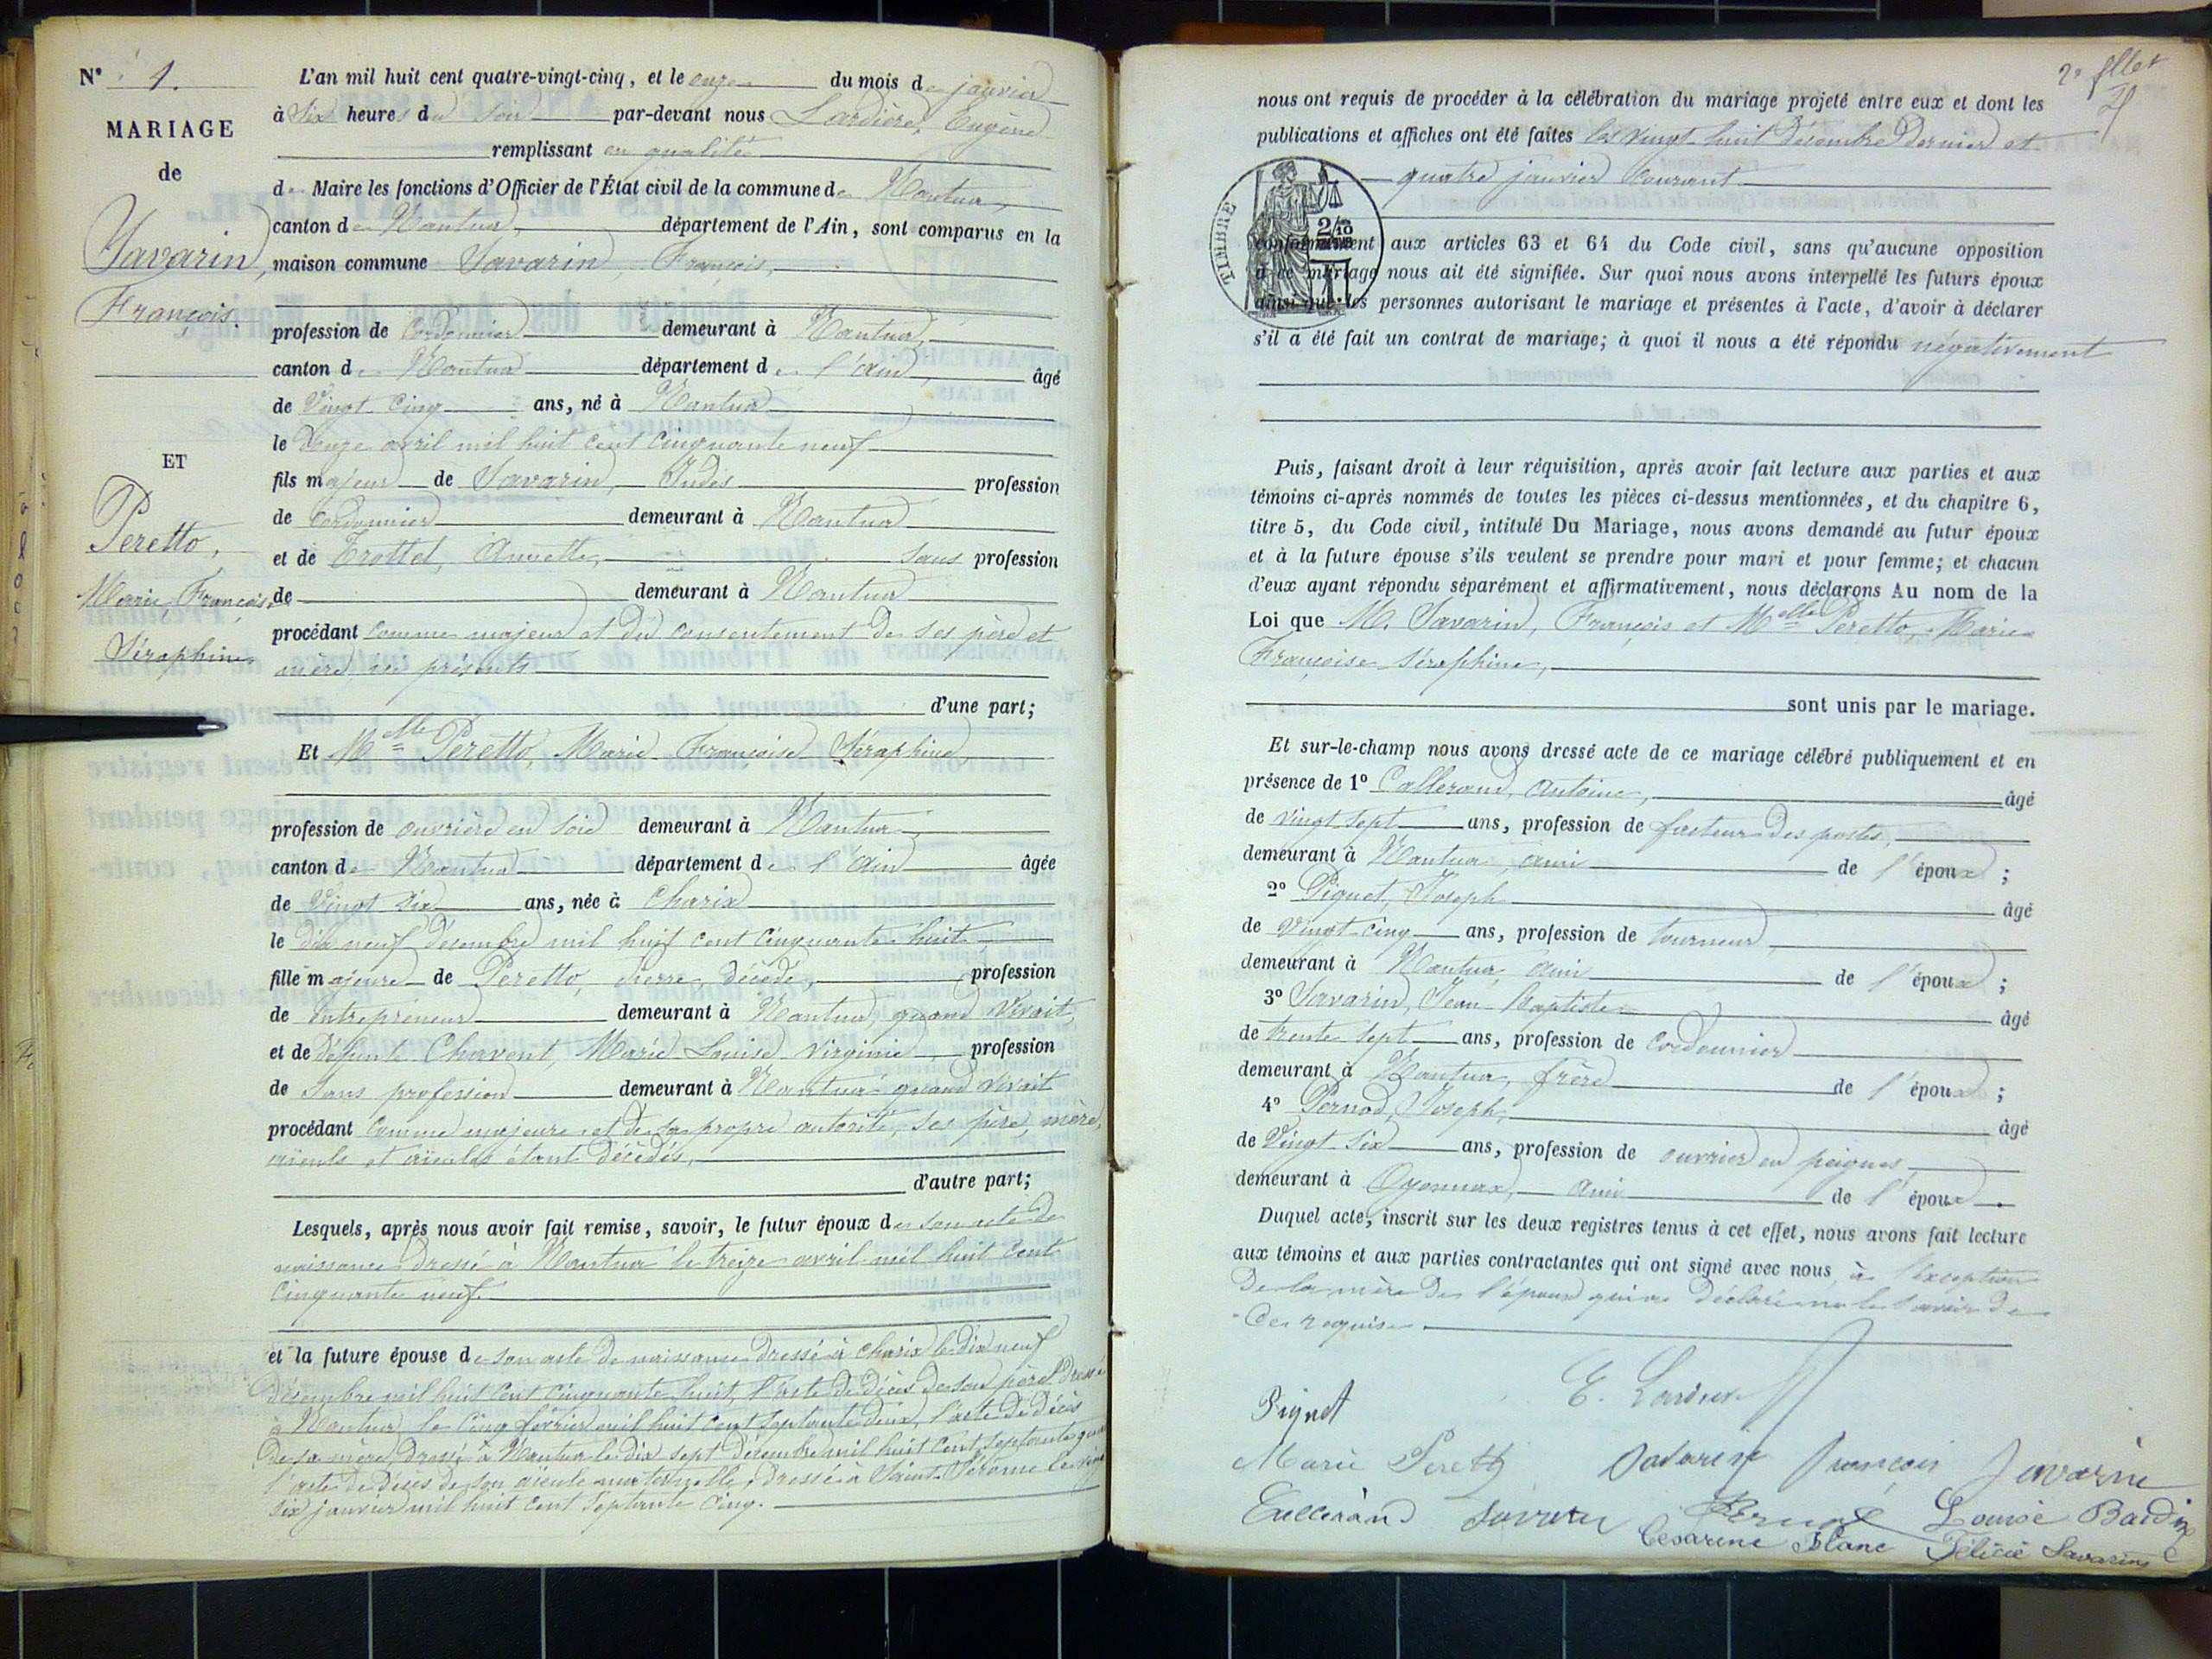 N° 1.
MARIAGE
de
Savarin,
François.
ET
Peretto,
Marie, Françoise
Séraphine
L'an mil huit cent quatre-vingt-cinq, et le onze du mois de janvier
à Six heures du soir par-devant nous Lardière, Eugène
remplissant en qualité
de Maire les fonctions d'Officier de l'État civil de la commune de Nantua,
canton de Nantua, département de l'Ain, sont comparus en la
maison commune Savarin, François,
profession de Cordonnier demeurant à Nantua,
canton de Nantua département de l'Ain, âgé
de Vingt Cinq ans, né à Nantua
le douze avril mil huit cent cinquante neuf
fils majeur de Savarin, profession
de Cordonnier demeurant à Nantua
et de Trottet, Annette, sans profession
de demeurant à Nantua
procédant comme majeur et du consentement de ses père et
mère, ici présents
d'une part;
Et Melle Peretto, Marie Françoise Séraphine
profession de ouvrière en soie demeurant à Nantua,
canton de Nantua département de l'Ain âgée
de Vingt Six ans, née à Charix
le dix neuf Décembre mil huit cent cinquante huit
fille majeure de Peretto, Pierre, décédé, profession
de Entrepreneur demeurant à Nantua, quand vivait,
et de défunte Chavent, Marie Louise Virginie profession
de Sans profession demeurant à Nantua quand vivait
procédant comme majeure et de sa propre autorité, ses père mère,
aïeuls et aïeules étant décédés,
d'autre part;
Lesquels, après nous avoir fait remise, savoir, le futur époux de son acte de
naissance dressé à Nantua le treize avril mil huit cent
Cinquante neuf.
et la future épouse de son acte de naissance dressé à Charix le dix neuf
Décembre mil huit cent cinquante huit, l'acte de décès de son père dressé
à Nantua le cinq février mil huit cent septante deux, l'acte de décès
de sa mère, dressé à Nantua le dix sept Décembre mil huit cent septante
l'acte de décès de son aïeule maternelle, dressé à Saint-Jérôme le vingt
six janvier mil huit cent septante cinq.
2e fllet
nous ont requis de procéder à la célébration du mariage projeté entre eux et dont les
publications et affiches ont été faites les vingt huit Décembre dernier et
quatre janvier courant
TIMBRE
conformément aux articles 63 et 64 du Code civil, sans qu'aucune opposition
à ce mariage nous ait été signifiée. Sur quoi nous avons interpellé les futurs époux
ainsi que les personnes autorisant le mariage et présentes à l'acte, d'avoir à déclarer
s'il a été fait un contrat de mariage; à quoi il nous a été répondu négativement
Puis, faisant droit à leur réquisition, après avoir fait lecture aux parties et aux
témoins ci-après nommés de toutes les pièces ci-dessus mentionnées, et du chapitre 6,
titre 5, du Code civil, intitulé Du Mariage, nous avons demandé au futur époux
et à la future épouse s'ils veulent se prendre pour mari et pour femme; et chacun
d'eux ayant répondu séparément et affirmativement, nous déclarons Au nom de la
Loi que M. Savarin, François et Melle Peretto, Marie
Françoise Séraphine,
sont unis par le mariage.
Et sur-le-champ nous avons dressé acte de ce mariage célébré publiquement et en
présence de 1° Callerand, Antoine, âgé
de vingt sept ans, profession de facteur des postes,
demeurant à Nantua, ami de l'époux;
2° Piquet, Joseph âgé
de Vingt-cinq ans, profession de tourneur
demeurant à Nantua, ami de l'époux;
3° Savarin, Jean-Baptiste âgé
de trente sept ans, profession de Cordonnier
demeurant à Nantua, frère de l'époux;
4° Pernod, Joseph, âgé
de Vingt Six ans, profession de ouvrier en peignes,
demeurant à Oyonnax, ami de l'époux.
Duquel acte, inscrit sur les deux registres tenus à cet effet, nous avons fait lecture
aux témoins et aux parties contractantes qui ont signé avec nous, à l'exception
de la mère de l'époux qui a déclaré ne le savoir de
ce requise
E. Lardière
Piquet
Marie Peretto Savarin François Savarin
Callerand Savarin Pernod Louise Baudin
Césarine Blanc Félicie Savarin